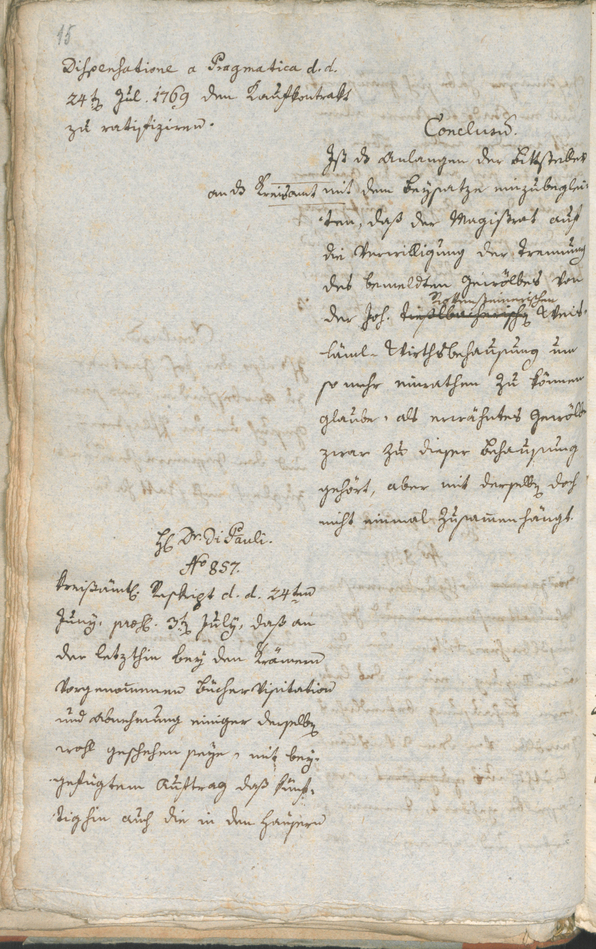 15
Dispensatione a Pragmatica d. d.
24ten Jul. 1769 den Kaufkontrakt
zu ratifiziren.
Conclusum.
Ist das Anlangen der Bittsteller
an das Kreisamt mit dem Beysatze einzubeglei-
ten, daß der Magistrat auf
die Verwilligung der Trennung
des bemeldten Gewölbes von
der Joh. Weit-
läml. Wirthsbehausung um
so mehr einrathen zu können
glaube, als erwähntes Gewölb
zwar zu dieser Behausung
gehört, aber mit derselben doch
nicht einmal zusammenhängt.
H. Dr. Di Pauli.
No 857.
Kreisämtl. Reskript d. d. 24ten
Juny, praes. 3ten July, daß an
der letzthin bey den Krämern
vorgenommenen Bücher Visitation
und Abnehmung einiger derselben
wohl geschehen seye, mit bey-
gefügtem Auftrag daß künf-
tighin auch die in den Häusern